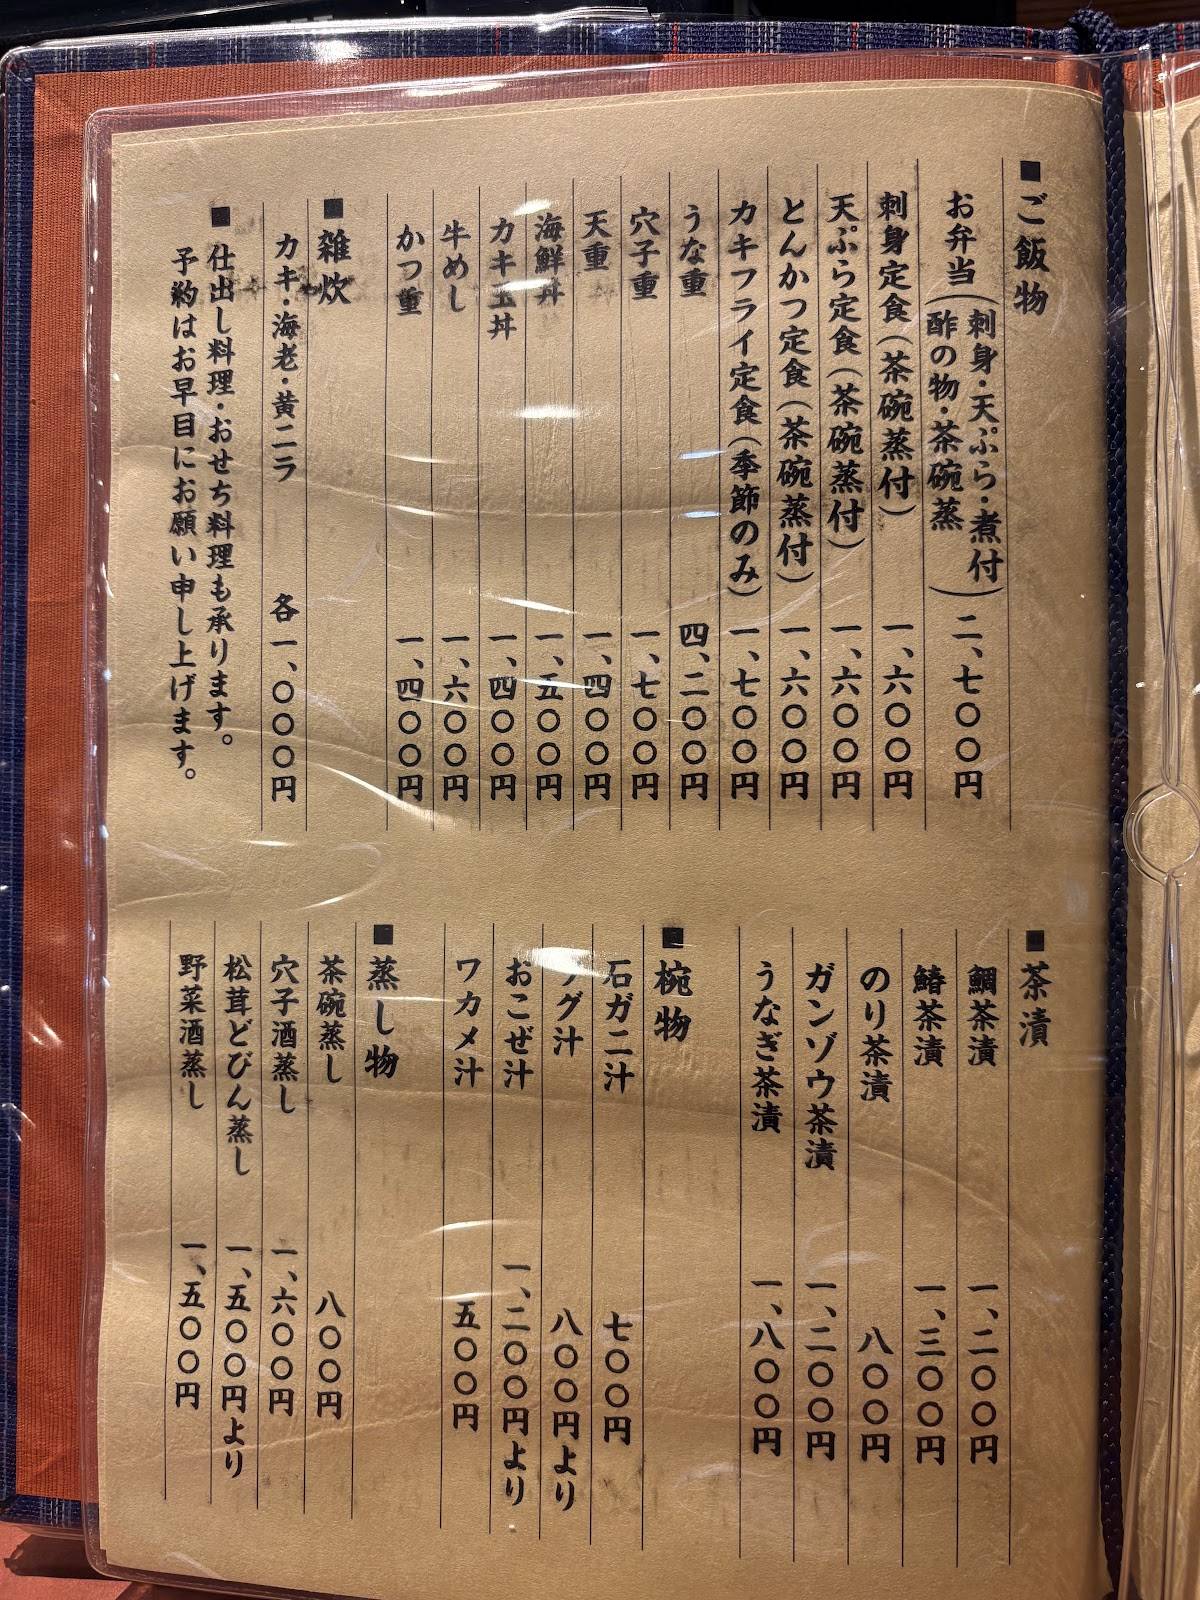 ■ご飯物
お弁当(刺身・天ぷら・煮付
酢の物・茶碗蒸) 二、七〇〇円
刺身定食(茶碗蒸付) 一、六〇〇円
天ぷら定食(茶碗蒸付) 一、六〇〇円
とんかつ定食(茶碗蒸付) 一、六〇〇円
カキフライ定食(季節のみ) 一、七〇〇円
うな重 四、二〇〇円
穴子重 一、七〇〇円
天重 一、四〇〇円
海鮮丼 一、五〇〇円
カキ玉丼 一、四〇〇円
牛めし 一、六〇〇円
かつ重 一、四〇〇円
■雑炊
カキ・海老・黄ニラ 各一、〇〇〇円
■仕出し料理・おせち料理も承ります。
予約はお早目にお願い申し上げます。
■茶漬
鯛茶漬 一、二〇〇円
鰆茶漬 一、三〇〇円
のり茶漬 八〇〇円
ガンゾウ茶漬 一、二〇〇円
うなぎ茶漬 一、八〇〇円
■椀物
石ガニ汁 七〇〇円
グ汁 八〇〇円より
おこぜ汁 一、二〇〇円より
ワカメ汁 五〇〇円
■蒸し物
茶碗蒸し 八〇〇円
穴子酒蒸し 一、六〇〇円
松茸どびん蒸し 一、五〇〇円より
野菜酒蒸し 一、五〇〇円